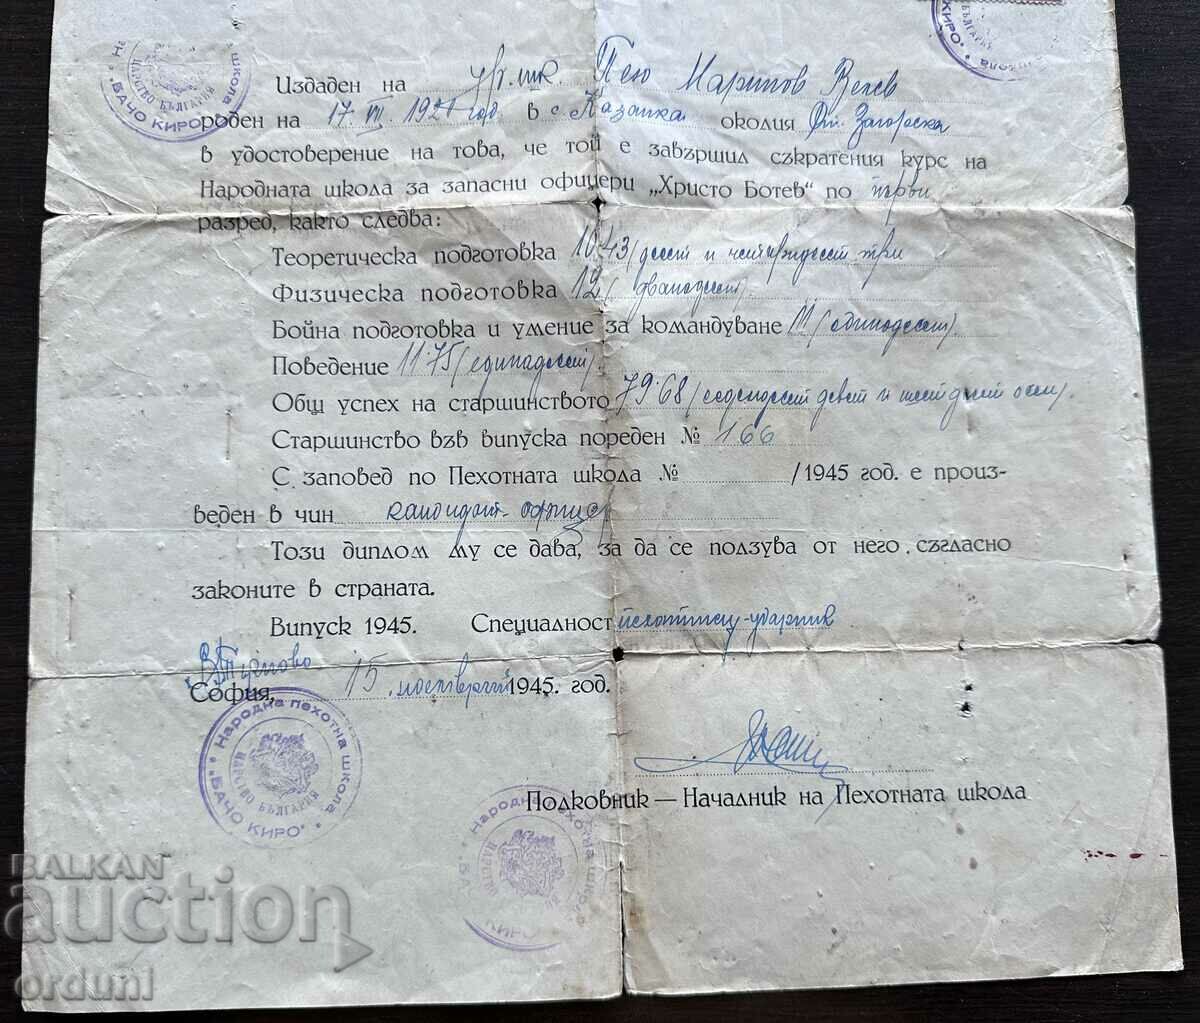 Издаден на Маринов Велев
роден на 17. VII. 1921 год в с. Казанка околия Ст. Загорска
в удостоверение на това, че той е завършил съкратения курс на
Народната школа за запасни офицери „Христо Ботев“ по първи
разряд, както следва:
Теоретическа подготовка 10.43 /десет и четиридесет три
Физическа подготовка 12 /дванадесет/.
Бойна подготовка и умение за командуване 11 /единадесет/.
Поведение 11.75 /единадесет/.
Общ успех на старшинството 79.68 /седемдесет девет и шестдесет осем/.
Старшинство във випуска пореден № 166
С заповед по Пехотната школа № /1945 год. е произ-
веден в чин кандидат-офицер
Този диплом му се дава, за да се ползува от него, съгласно
законите в страната.
Випуск 1945. Специалност пехотинец-ударник
В. Търново
София, 15 ноемврий 1945. год.
Полковник — Началник на Пехотната школа
Народна пехотна школа
„БАЧО КИРО“
ЦАРСТВО БЪЛГАРИЯ
BALKAN
auction
orduni